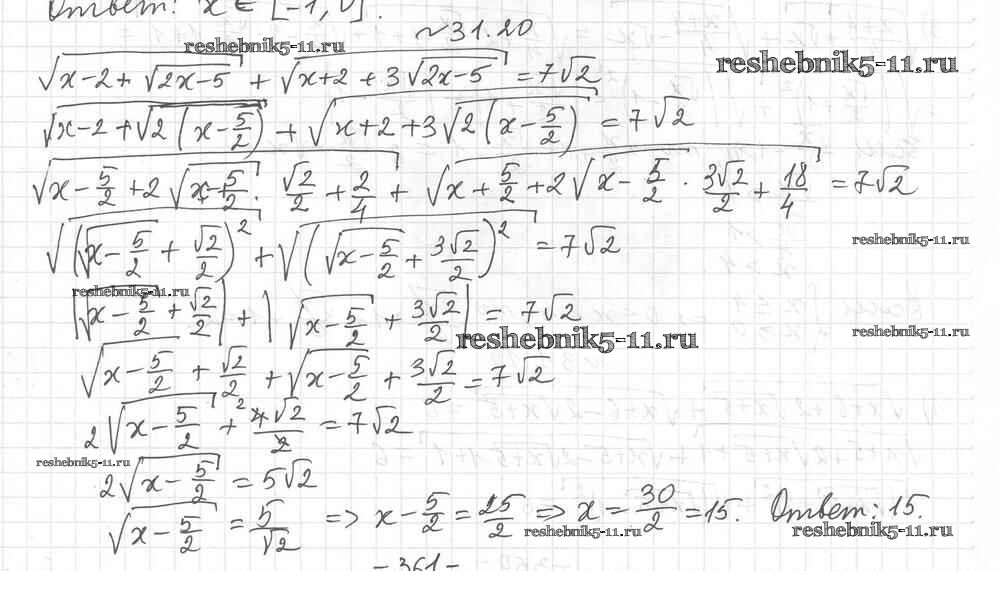 Ответ: x ∈ [-1, 0].
~ 31.20
reshebnik5-11.ru
reshebnik5-11.ru
√(x-2+√(2x-5)) + √(x+2+3√(2x-5)) = 7√2
√(x-2+√(2(x-5/2))) + √(x+2+3√(2(x-5/2))) = 7√2
√(x-5/2+2√(x-5/2)·√2/2+2/4) + √(x+5/2+2√(x-5/2)·3√2/2+18/4) = 7√2
√((√(x-5/2)+√2/2)²) + √((√(x-5/2)+3√2/2)²) = 7√2
reshebnik5-11.ru
reshebnik5-11.ru
|√(x-5/2)+√2/2| + |√(x-5/2)+3√2/2| = 7√2
reshebnik5-11.ru
reshebnik5-11.ru
√(x-5/2) + √2/2 + √(x-5/2) + 3√2/2 = 7√2
2√(x-5/2) + 4√2/2 = 7√2
reshebnik5-11.ru
2√(x-5/2) = 5√2
√(x-5/2) = 5/√2 => x-5/2 = 25/2 => x = 30/2 = 15. Ответ: 15.
reshebnik5-11.ru
reshebnik5-11.ru
- 361 -